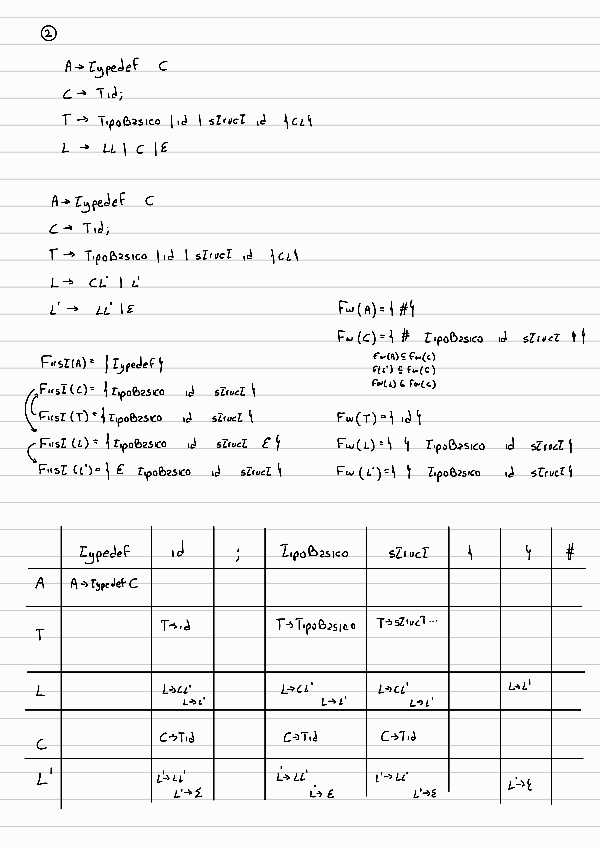 2
A → Typedef C
C → T id;
T → TipoBasico | id | struct id { CL }
L → LL | C | ε
A → Typedef C
C → T id;
T → TipoBasico | id | struct id { CL }
L → CL' | L'
L' → LL' | ε
Fw(A) = { # }
Fw(C) = { # TipoBasico id struct } }
Fw(A) ⊆ Fw(C)
F(L') ⊆ Fw(C)
Fw(L) ⊆ Fw(C)
First(A) = { Typedef }
First(C) = { TipoBasico id struct }
First(T) = { TipoBasico id struct }
First(L) = { TipoBasico id struct ε }
First(L') = { ε TipoBasico id struct }
Fw(T) = { id }
Fw(L) = { } TipoBasico id struct }
Fw(L') = { } TipoBasico id struct }
Typedef id ; TipoBasico struct { } #
A A → Typedef C
T T → id T → TipoBasico T → struct ...
L L → CL' L → CL' L → CL' L → L'
L → L' L → L' L → L'
C C → T id C → T id C → T id
L' L' → LL' L' → LL' L' → LL' L' → ε
L' → ε L' → ε L' → ε